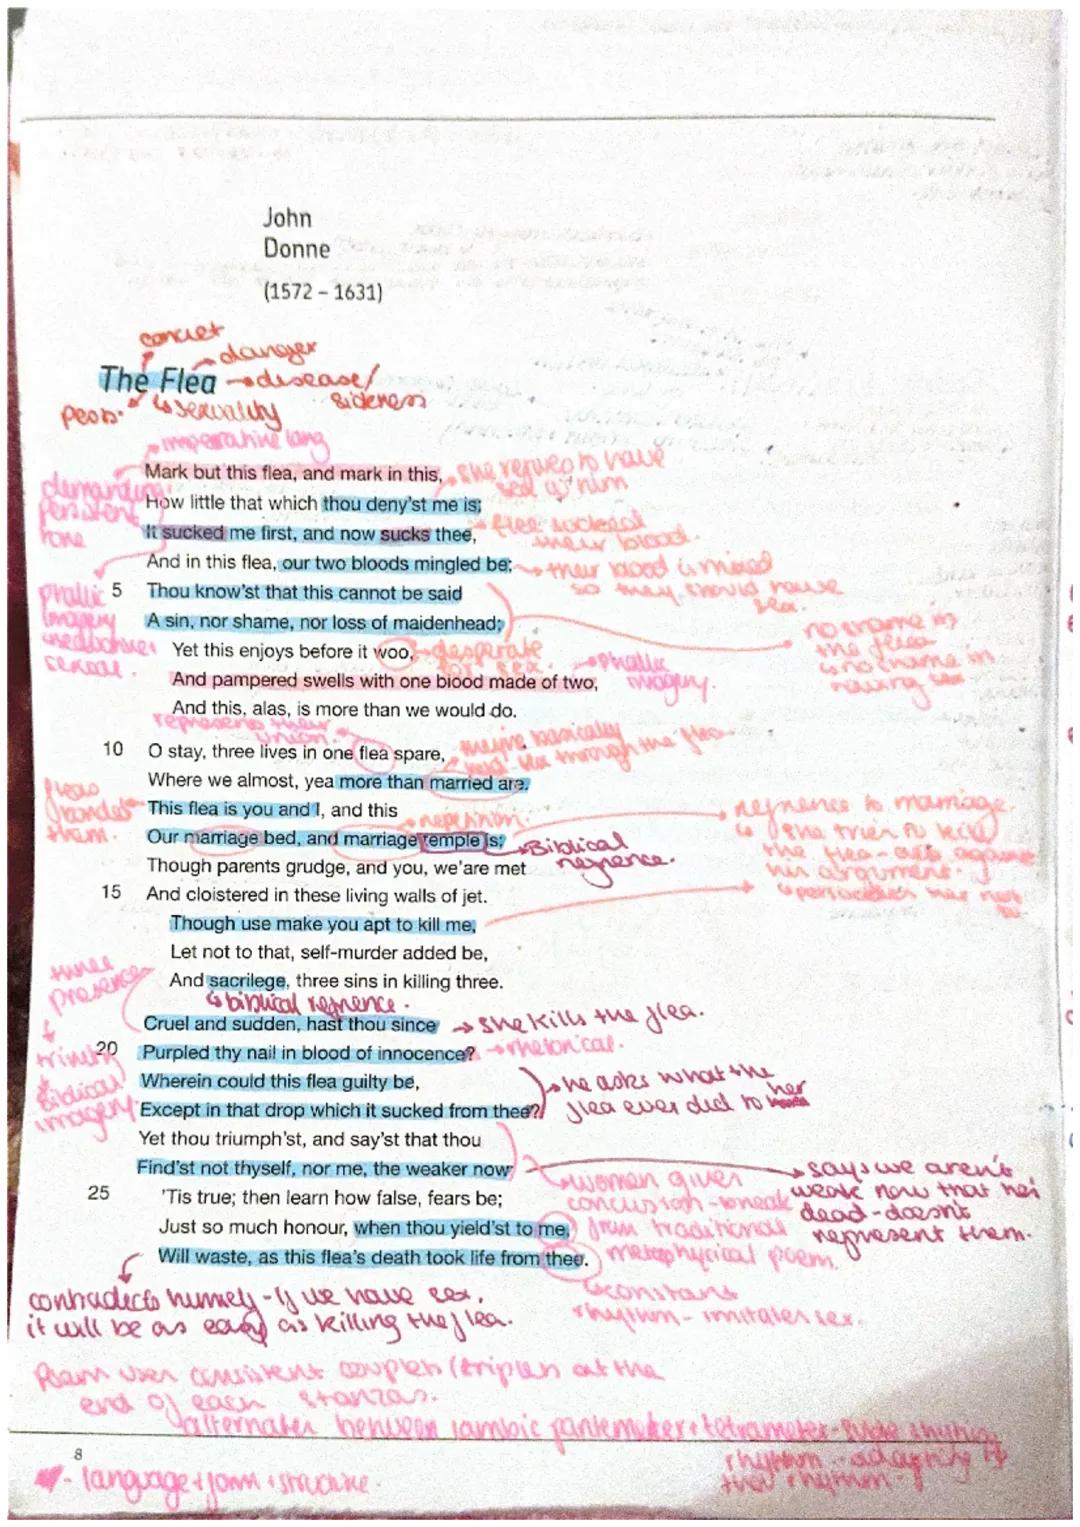 John
Donne
(1572 – 1631)
danger
The Flea → disease/
sickness
↳ sexuality
imperative lang
Mark but this flea, and mark in this,
she refuses to have
sex w him
How little that which thou deny'st me is;
demanding
persistent
tone
It sucked me first, and now sucks thee,
flea sucked
their blood.
And in this flea, our two bloods mingled be;
their blood is mixed
so they should have
sex.
5 Thou know'st that this cannot be said
phallic
imagery
A sin, nor shame, nor loss of maidenhead;
no shame in
the flea
↳ no shame in
having sex
Yet this enjoys before it woo,
desperate
for sex.
phallic
imagery.
And pampered swells with one blood made of two,
And this, alas, is more than we would do.
represents their
union.
10 O stay, three lives in one flea spare,
they're basically
through the flea
Where we almost, yea more than married are.
This flea is you and I, and this
fleas
bonded
them.
repetition.
Our marriage bed, and marriage temple is;
Biblical
refrence.
refrence to marriage.
↳ she tries to kill
the flea - against
his argument.
↳ persuades her not
to
Though parents grudge, and you, we'are met
15 And cloistered in these living walls of jet.
Though use make you apt to kill me,
Let not to that, self-murder added be,
And sacrilege, three sins in killing three.
↳ biblical refrence.
three
presence
↓
trinity
Biblical
imagery.
Cruel and sudden, hast thou since → she kills the flea.
20 Purpled thy nail in blood of innocence? → rhetorical.
Wherein could this flea guilty be,
Except in that drop which it sucked from thee?
he asks what the
flea ever did to her
Yet thou triumph'st, and say'st that thou
Find'st not thyself, nor me, the weaker now
says we aren't
weak now that he's
dead - doesn't
represent them.
25 'Tis true; then learn how false, fears be;
Just so much honour, when thou yield'st to me,
Will waste, as this flea's death took life from thee.
women given
conclusion - break
from traditional
metaphysical poem.
↳ constant
rhythm - imitates sex.
contradicts himself - if we have sex,
it will be as easy as killing the flea.
Poem uses consistent couplets (triplets at the
end of each stanzas.
alternates between iambic pentameter + tetrameter
rhythm - adapting
their rhythm
8
- language + form + structure.